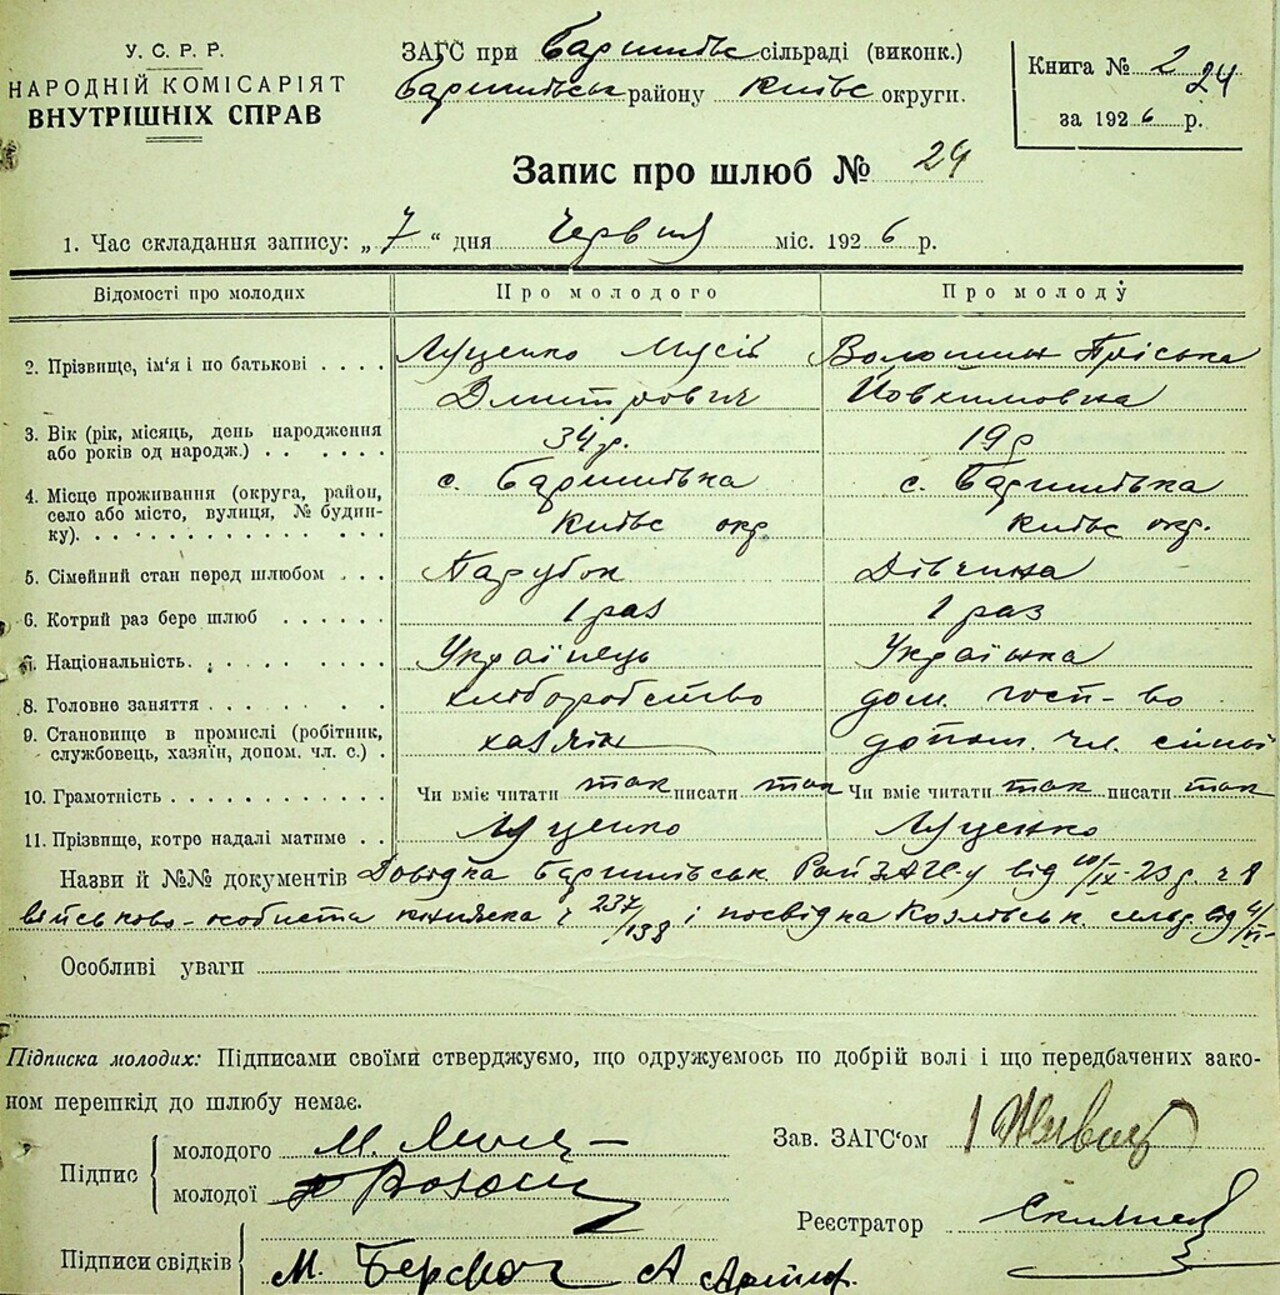 У. С. Р. Р.
НАРОДНІЙ КОМІСАРІЯТ
ВНУТРІШНІХ СПРАВ
ЗАГС при Баришівс сільраді (виконк.)
Баришівськ району Київс округи.
Книга № 2 24
за 1926 р.
Запис про шлюб № 24
1. Час складання запису: „7“ дня Червня міс. 1926 р.
Відомості про молодих
Про молодого
Про молоду
2. Прізвище, ім'я і по батькові . . . .
Луценко Мусій
Дмитрович
Волошин Пріська
Йовхимовна
3. Вік (рік, місяць, день народження
або років од народж.) . . . . . .
34 р.
19 р
4. Місце проживання (округа, район,
село або місто, вулиця, № будин-
ку). . . . . . . . . . . . . . .
с. Баришівка
Київс окр.
с. Баришівка
Київс окр.
5. Сімейний стан перед шлюбом . . .
Парубок
Дівчина
6. Котрий раз бере шлюб . . . . . .
1 раз
1 раз
7. Національність. . . . . . . . . .
Українець
Українка
8. Головне заняття . . . . . . .
хліборобство
дом. госп-во
9. Становище в промислі (робітник,
службовець, хазяїн, допом. чл. с.) .
хазяїн
допом. чл. сімї
10. Грамотність . . . . . . . . . . . .
Чи вміє читати так писати так
Чи вміє читати так писати так
11. Прізвище, котре надалі матиме . .
Луценко
Луценко
Назви й №№ документів Довідка Баришівськ. РайЗАГС-у від 10/IX-23 р. ч 8
військово-особиста книжка ч 237/138 і посвідка Козлівськ. сельр. від 4/VI-
Особливі уваги
Підписка молодих: Підписами своїми стверджуємо, що одружуємось по добрій волі і що передбачених зако-
ном перешкід до шлюбу немає.
Підпис
молодого М.
молодої
Зав. ЗАГС'ом
Реєстратор
Підписи свідків
М. А